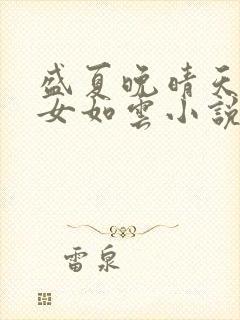 盛夏晚晴天
女如雲小說
雷泉